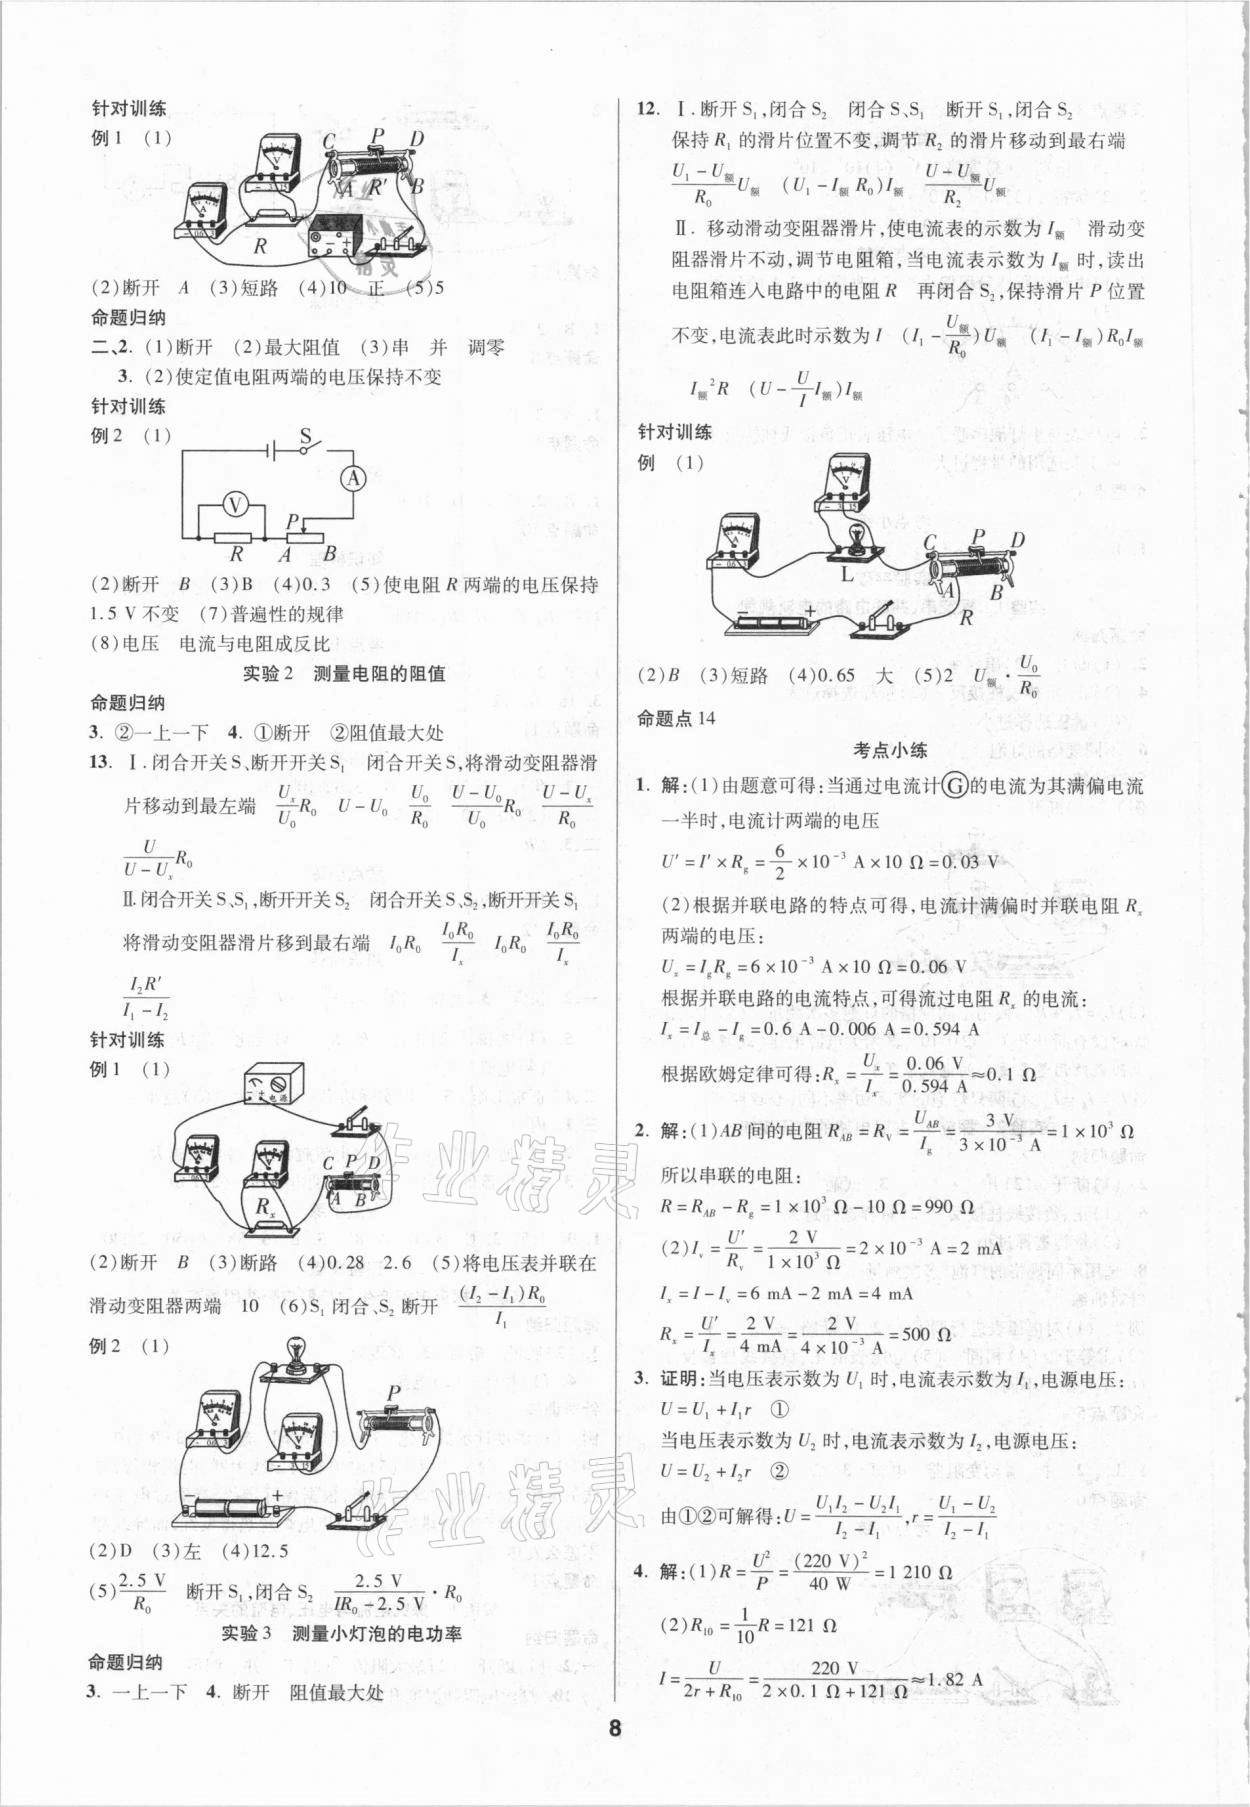 针对训练
例1 (1)
C P D
A R' B
R
(2)断开 A (3)短路 (4)10 正 (5)5
命题归纳
二、2. (1)断开 (2)最大阻值 (3)串 并 调零
3. (2)使定值电阻两端的电压保持不变
针对训练
例2 (1)
S
A
V
P
R A B
(2)断开 B (3)B (4)0.3 (5)使电阻R两端的电压保持
1.5 V不变 (7)普遍性的规律
(8)电压 电流与电阻成反比
实验2 测量电阻的阻值
命题归纳
3. ②一上一下 4. ①断开 ②阻值最大处
13. Ⅰ.闭合开关S、断开开关S₁ 闭合开关S,将滑动变阻器滑
片移动到最左端 $\frac{U_x}{U_0}R_0$ $U-U_0$ $\frac{U_0}{R_0}$ $\frac{U-U_0}{U_0}R_0$ $\frac{U-U_x}{R_0}$
$\frac{U}{U-U_x}R_0$
Ⅱ.闭合开关S、S₁,断开开关S₂ 闭合开关S、S₂,断开开关S₁
将滑动变阻器滑片移到最右端 $I_0R_0$ $\frac{I_0R_0}{I_x}$ $I_0R_0$ $\frac{I_0R_0}{I_x}$
$\frac{I_2R'}{I_1-I_2}$
针对训练
例1 (1)
电源
C P D
A B
Rₓ
(2)断开 B (3)断路 (4)0.28 2.6 (5)将电压表并联在
滑动变阻器两端 10 (6)S₁闭合、S₂断开 $\frac{(I_2-I_1)R_0}{I_1}$
例2 (1)
P
(2)D (3)左 (4)12.5
(5)$\frac{2.5\ V}{R_0}$ 断开S₁,闭合S₂ $\frac{2.5\ V}{IR_0-2.5\ V}·R_0$
实验3 测量小灯泡的电功率
命题归纳
3. 一上一下 4. 断开 阻值最大处
12. Ⅰ.断开S₁,闭合S₂ 闭合S、S₁ 断开S₁,闭合S₂
保持R₁的滑片位置不变,调节R₂的滑片移动到最右端
$\frac{U_1-U_额}{R_0}U_额$ $(U_1-I_额R_0)I_额$ $\frac{U-U_额}{R_2}U_额$
Ⅱ. 移动滑动变阻器滑片,使电流表的示数为I额 滑动变
阻器滑片不动,调节电阻箱,当电流表示数为I额时,读出
电阻箱连入电路中的电阻R 再闭合S₂,保持滑片P位置
不变,电流表此时示数为I $(I_1-\frac{U_额}{R_0})U_额$ $(I_1-I_额)R_0I_额$
$I_额^2R$ $(U-\frac{U}{I}I_额)I_额$
针对训练
例 (1)
L
C P D
A B
R
(2)B (3)短路 (4)0.65 大 (5)2 $U_额·\frac{U_0}{R_0}$
命题点14
考点小练
1. 解:(1)由题意可得:当通过电流计Ⓖ的电流为其满偏电流
一半时,电流计两端的电压
$U'=I'×R_g=\frac{6}{2}×10^{-3}\ A×10\ Ω=0.03\ V$
(2)根据并联电路的特点可得,电流计满偏时并联电阻Rₓ
两端的电压:
$U_x=I_gR_g=6×10^{-3}\ A×10\ Ω=0.06\ V$
根据并联电路的电流特点,可得流过电阻Rₓ的电流:
$I_x=I_总-I_g=0.6\ A-0.006\ A=0.594\ A$
根据欧姆定律可得:$R_x=\frac{U_x}{I_x}=\frac{0.06\ V}{0.594\ A}≈0.1\ Ω$
2. 解:(1)AB间的电阻$R_{AB}=R_V=\frac{U_{AB}}{I_g}=\frac{3\ V}{3×10^{-3}\ A}=1×10^3\ Ω$
所以串联的电阻:
$R=R_{AB}-R_g=1×10^3\ Ω-10\ Ω=990\ Ω$
(2)$I_v=\frac{U'}{R_v}=\frac{2\ V}{1×10^3\ Ω}=2×10^{-3}\ A=2\ mA$
$I_x=I-I_v=6\ mA-2\ mA=4\ mA$
$R_x=\frac{U'}{I_x}=\frac{2\ V}{4\ mA}=\frac{2\ V}{4×10^{-3}\ A}=500\ Ω$
3. 证明:当电压表示数为U₁时,电流表示数为I₁,电源电压:
$U=U_1+I_1r$ ①
当电压表示数为U₂时,电流表示数为I₂,电源电压:
$U=U_2+I_2r$ ②
由①②可解得:$U=\frac{U_1I_2-U_2I_1}{I_2-I_1},r=\frac{U_1-U_2}{I_2-I_1}$
4. 解:(1)$R=\frac{U^2}{P}=\frac{(220\ V)^2}{40\ W}=1\ 210\ Ω$
(2)$R_{10}=\frac{1}{10}R=121\ Ω$
$I=\frac{U}{2r+R_{10}}=\frac{220\ V}{2×0.1\ Ω+121\ Ω}≈1.82\ A$
8
作业精灵
作业精灵